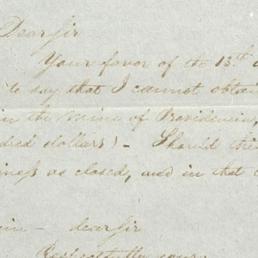 Dear Sir
Your favor of the 13th
to say that I cannot obtain
in the mine of Providencia,
dred dollars) - Should the
iness as closed, and in that
- dear Sir
Respectfully yours